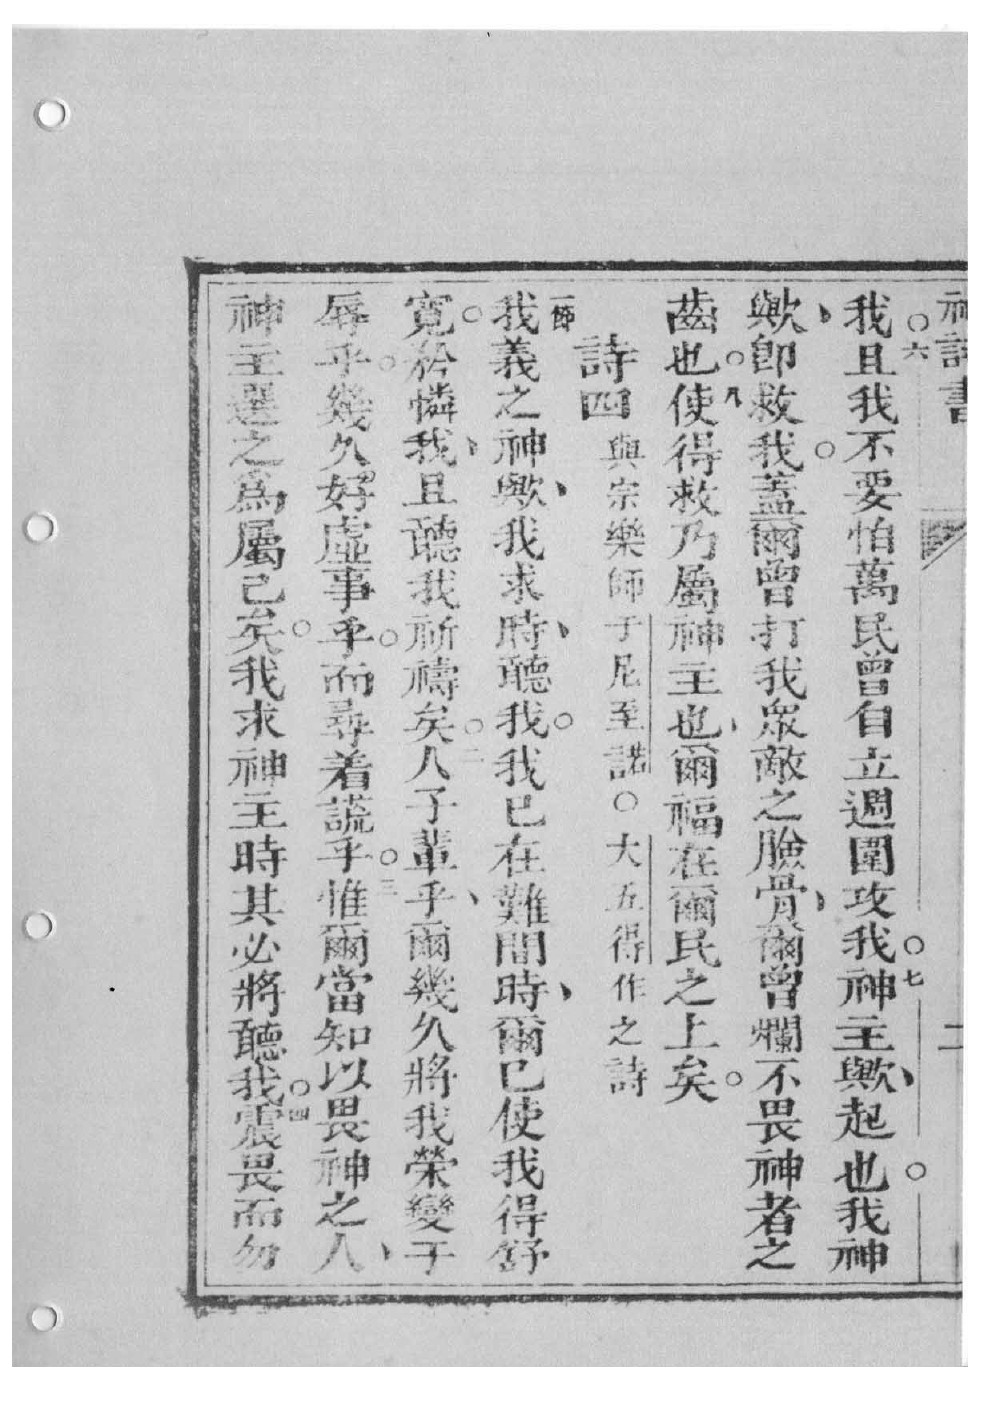 神詩書 二
我○六且我不要怕萬民曾自立週圍攻我○七神主歟、起也○我神
歟、即救我○蓋爾曾打我眾敵之臉骨、爾曾爛不畏神者之
齒也○八使得救乃屬神主也、爾福在爾民之上矣○
詩四 與宗樂師于尼至諾○大五得作之詩
一節我義之神歟、我求時、聽我○我已在難間時、爾已使我得舒
寬○矜憐我、且聽我祈禱矣○二人子輩乎、爾幾久將我榮變于
辱乎○幾久好虛事乎○而尋着謊乎○三惟爾當知以畏神之人、
神主選之為屬己矣○我求神主時其必將聽我○四震畏而勿